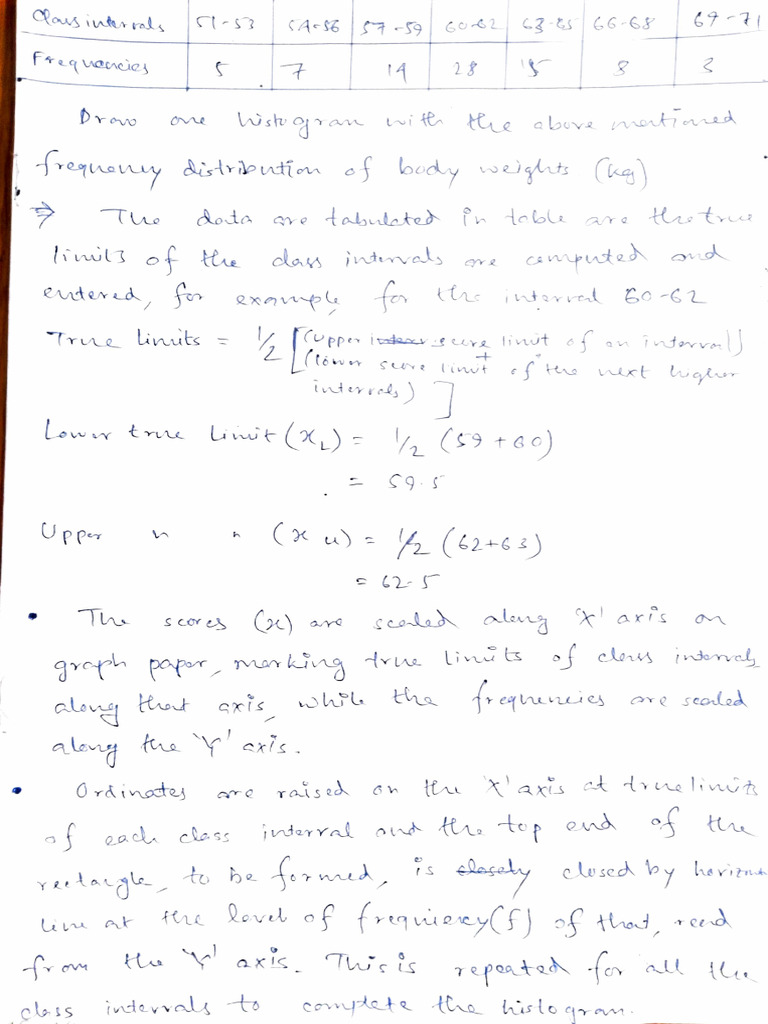 Class intervals 51-53 54-56 57-59 60-62 63-65 66-68 69-71
Frequencies 5 7 14 28 15 8 3
Draw one histogran with the above mentioned
frequency distribution of body weights (kg)
⇒ The data are tabulated in table are the true
limits of the class intervals are computed and
entered, for example for the interval 60-62
True limits = 1/2 [(upper score limit of an interval)
(lower score limit + of the next higher
intervals) ]
Lower true limit (x_L) = 1/2 (59+60)
= 59.5
Upper " " (x u) = 1/2 (62+63)
= 62.5
• The scores (x) are scaled along 'X' axis on
graph paper, marking true limits of class intervals
along that axis, while the frequencies are scaled
along the 'Y' axis.
• Ordinates are raised on the 'X' axis at true limits
of each class interval and the top end of the
rectangle, to be formed, is closed by horizon
line at the level of frequency (f) of that, read
from the 'Y' axis. This is repeated for all the
class intervals to complete the histogran.